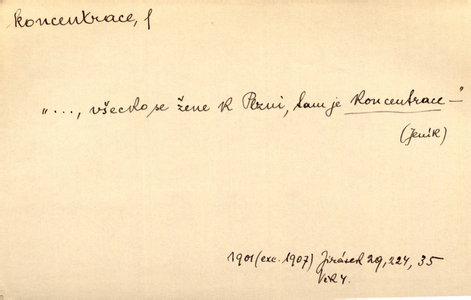 koncentrace, f
"..., všecko se žene k Plzni, tam je koncentrace –"
(Jeník)
1901 (exc. 1907) Jirásek 29, 224, 35